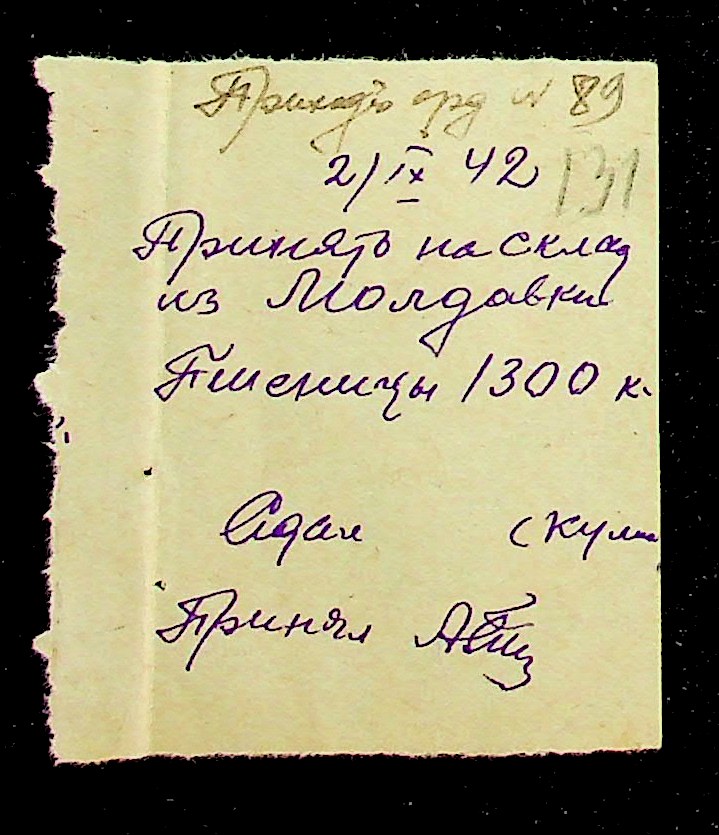 Приход орд № 89
2/IX 42
131
Принять на склад
из Молдавки
Пшеницы 1300 к.
Сдал
Принял